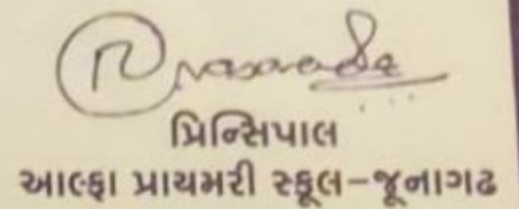 પ્રિન્સિપાલ
આલ્ફા પ્રાયમરી સ્કૂલ-જૂનાગઢ